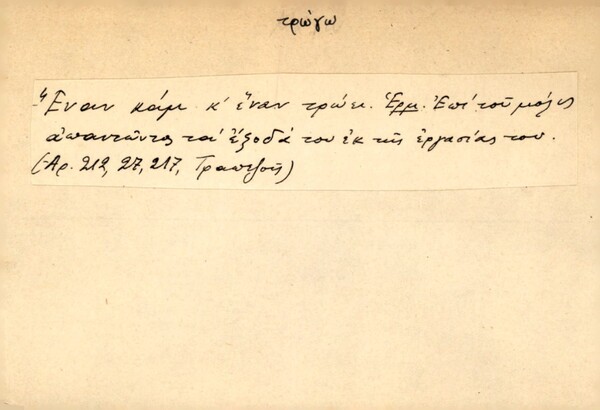 τρώγω
Ἕναν κάμ κ' ἕναν τρώει. Ἑρμ. Ἐπὶ τοῦ μόλις
ἀπαντῶντος τὰ ἔξοδά του ἐκ τῆς ἐργασίας του.
(Ἀρ. 212, 27, 217, Τραπεζοῦς)